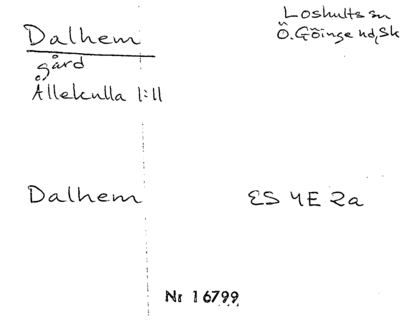 Dalhem
gård
Ållekulla 1:11
Loshults sn
Ö. Göinge hd, Sk
Dalhem
ES 4E 2a
Nr 16799